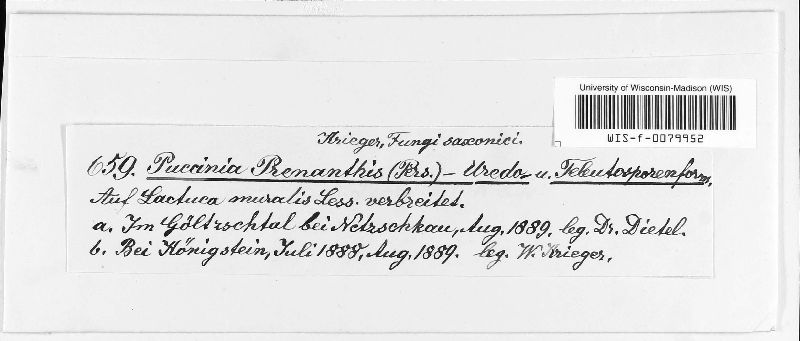 University of Wisconsin-Madison (WIS)
WIS-f-0079952
Krieger, Fungi saxonici.
659. Puccinia Prenanthis (Pers.) – Uredo- u. Teleutosporenform,
Auf Lactuca muralis Less. verbreitet.
a. Im Göltzschtal bei Netzschkau, Aug. 1889. leg. Dr. Dietel.
b. Bei Königstein, Juli 1888, Aug. 1889. leg. W. Krieger.